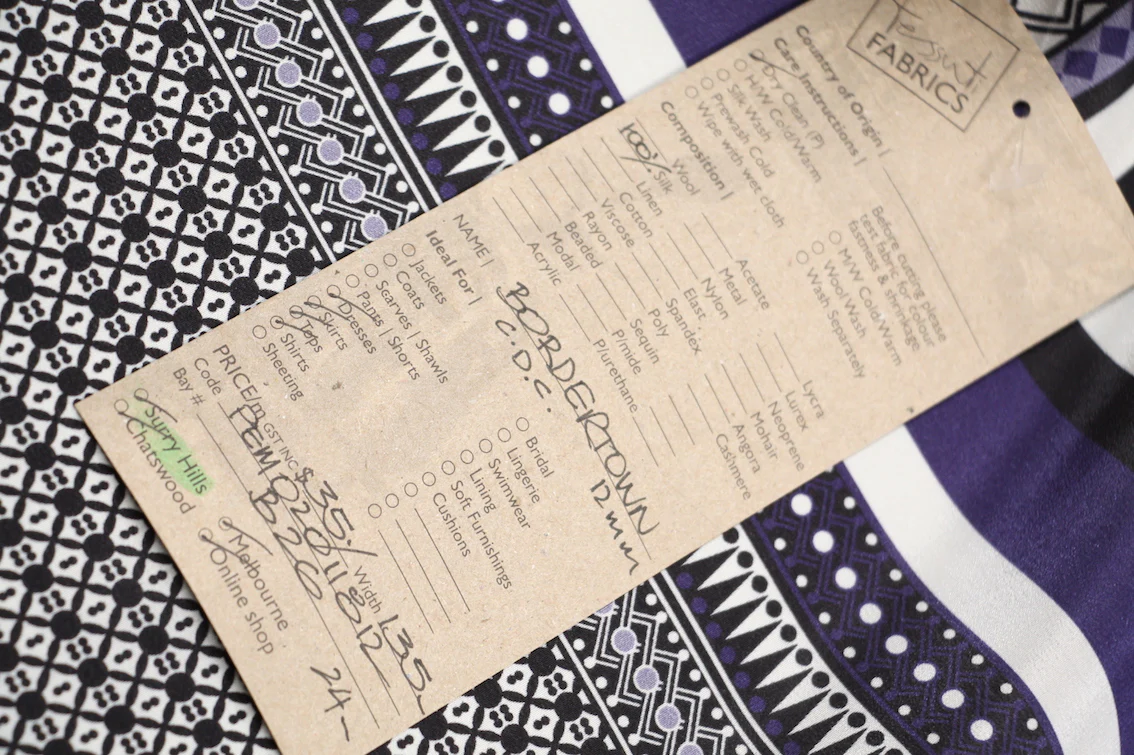 Tessuti
FABRICS
Country of Origin |
Care Instructions |
Dry Clean (P)
H/W Cold/Warm
Silk Wash
Prewash Cold
Wipe with wet cloth
Before cutting please
test fabric for colour
fastness & shrinkage
M/W Cold/Warm
Wool Wash
Wash Separately
Composition |
Wool
100% Silk
Linen
Cotton
Viscose
Rayon
Beaded
Modal
Acrylic
Acetate
Metal
Nylon
Elast.
Spandex
Poly
Sequin
P/mide
P/urethane
Lycra
Lurex
Neoprene
Mohair
Angora
Cashmere
NAME | BORDERTOWN
C.D.C. 12mm
Ideal For |
Jackets
Coats
Scarves | Shawls
Pants | Shorts
Dresses
Skirts
Tops
Shirts
Sheeting
Bridal
Lingerie
Swimwear
Lining
Soft Furnishings
Cushions
PRICE/m GST INC $35 Width 135
Code
Bay # B260
Surry Hills
Chatswood
Melbourne
Online shop
24-